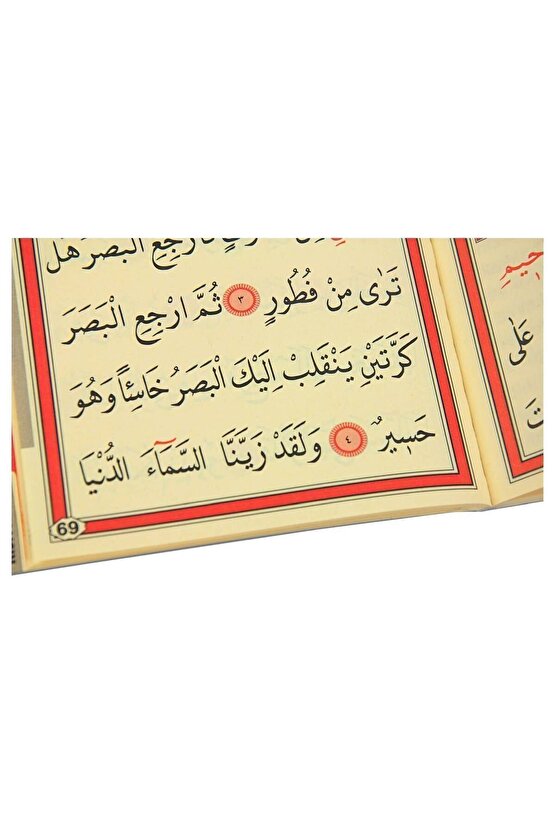 ارْجِعِ الْبَصَرَ هَلْ
تَرٰى مِنْ فُطُورٍ ٣ ثُمَّ ارْجِعِ الْبَصَرَ
كَرَّتَيْنِ يَنْقَلِبْ اِلَيْكَ الْبَصَرُ خَاسِئًا وَهُوَ
حَسِيرٌ ٤ وَلَقَدْ زَيَّنَّا السَّمَٓاءَ الدُّنْيَا
69
عَلٰى